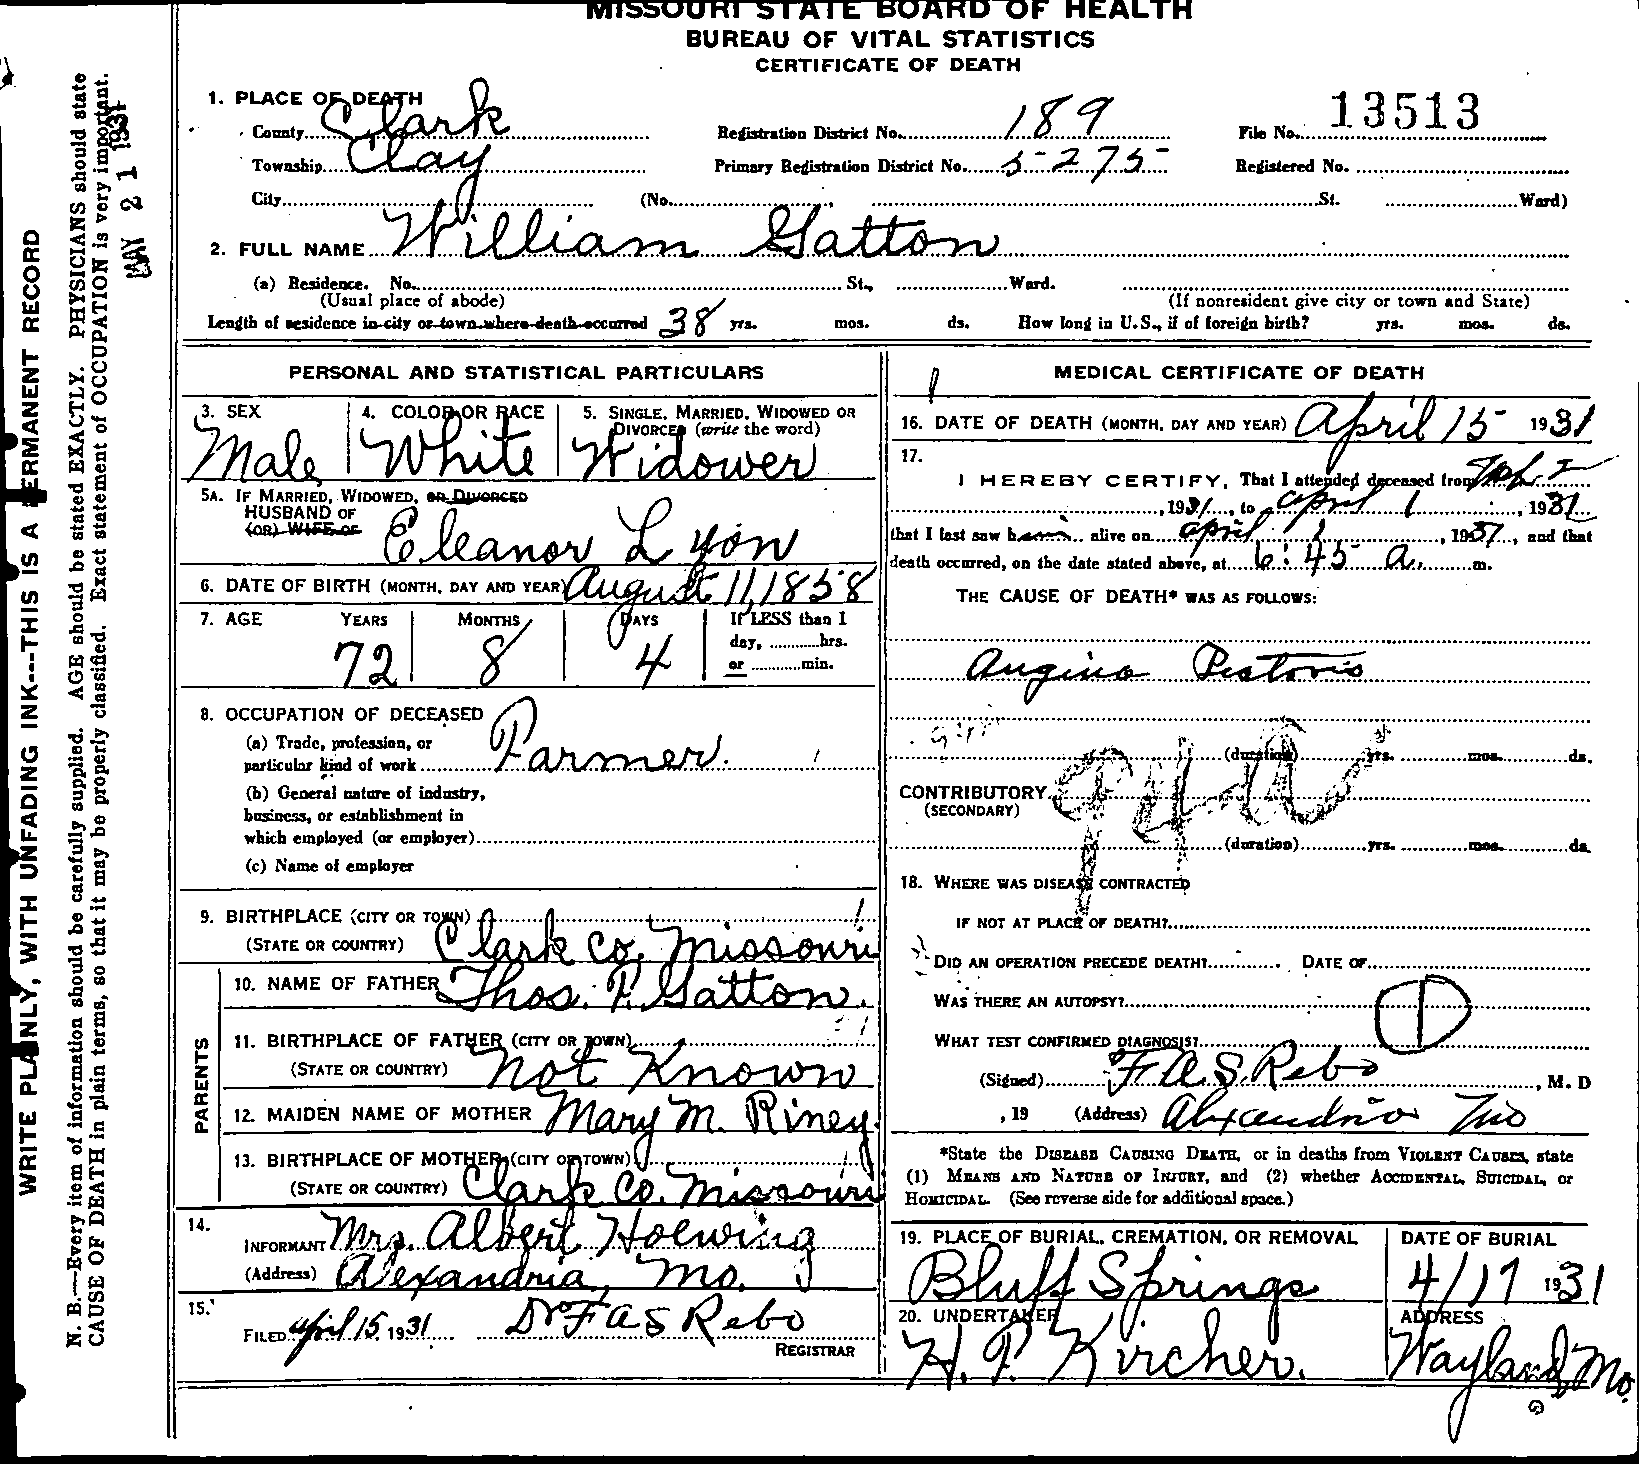 MISSOURI STATE BOARD OF HEALTH
BUREAU OF VITAL STATISTICS
CERTIFICATE OF DEATH
1. PLACE OF DEATH
County Clark Registration District No. 189 File No. 13513
Township Clay Primary Registration District No. 5275 Registered No.
City (No. St. Ward)
2. FULL NAME William Gatton
(a) Residence. No. St., Ward.
(Usual place of abode) (If nonresident give city or town and State)
Length of residence in city or town where death occurred 38 yrs. mos. ds. How long in U.S., if of foreign birth? yrs. mos. ds.
PERSONAL AND STATISTICAL PARTICULARS
3. SEX 4. COLOR OR RACE 5. SINGLE, MARRIED, WIDOWED OR
DIVORCED (write the word)
Male White Widower
5A. IF MARRIED, WIDOWED, OR DIVORCED
HUSBAND OF
(OR) WIFE OF Eleanor Lyon
6. DATE OF BIRTH (MONTH, DAY AND YEAR) August 11, 1858
7. AGE YEARS MONTHS DAYS If LESS than 1
day, hrs.
72 8 4 or min.
8. OCCUPATION OF DECEASED
(a) Trade, profession, or
particular kind of work Farmer.
(b) General nature of industry,
business, or establishment in
which employed (or employer)
(c) Name of employer
9. BIRTHPLACE (CITY OR TOWN)
(STATE OR COUNTRY) Clark Co. Missouri
PARENTS
10. NAME OF FATHER Thos. F. Gatton.
11. BIRTHPLACE OF FATHER (CITY OR TOWN)
(STATE OR COUNTRY) Not Known
12. MAIDEN NAME OF MOTHER Mary M. Riney
13. BIRTHPLACE OF MOTHER (CITY OR TOWN)
(STATE OR COUNTRY) Clark Co. Missouri
14.
INFORMANT Mrs. Albert Hoewing
(Address) Alexandria, Mo.
15.
FILED April 15, 1931 Dr F A S Rebo
REGISTRAR
MEDICAL CERTIFICATE OF DEATH
16. DATE OF DEATH (MONTH, DAY AND YEAR) April 15 1931
17.
I HEREBY CERTIFY, That I attended deceased from
, 1931, to April 1, 1931
that I last saw him alive on April 1, 1931, and that
death occurred, on the date stated above, at 6:45 a. m.
THE CAUSE OF DEATH* WAS AS FOLLOWS:
Angina Pectoris
(duration) yrs. mos. ds.
CONTRIBUTORY
(SECONDARY)
(duration) yrs. mos. ds.
18. WHERE WAS DISEASE CONTRACTED
IF NOT AT PLACE OF DEATH?
DID AN OPERATION PRECEDE DEATH? DATE OF
WAS THERE AN AUTOPSY?
WHAT TEST CONFIRMED DIAGNOSIS?
(Signed) F A. S. Rebo, M. D
, 19 (Address) Alexandria Mo
*State the DISEASE CAUSING DEATH, or in deaths from VIOLENT CAUSES, state
(1) MEANS AND NATURE OF INJURY, and (2) whether ACCIDENTAL, SUICIDAL, or
HOMICIDAL. (See reverse side for additional space.)
19. PLACE OF BURIAL, CREMATION, OR REMOVAL DATE OF BURIAL
Bluff Springs 4/17 1931
20. UNDERTAKER ADDRESS
H. F. Kircher. Wayland Mo.
WRITE PLAINLY, WITH UNFADING INK---THIS IS A PERMANENT RECORD
N. B.—Every item of information should be carefully supplied. AGE should be stated EXACTLY. PHYSICIANS should state
CAUSE OF DEATH in plain terms, so that it may be properly classified. Exact statement of OCCUPATION is very important.
MAY 21 1931